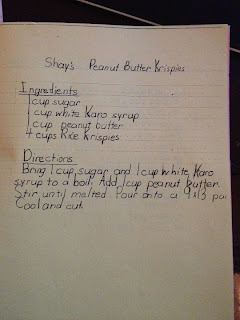 Shay's Peanut Butter Krispies
Ingredients
1 cup sugar
1 cup white Karo syrup
1 cup peanut butter
4 cups Rice Krispies
Directions
Bring 1 cup sugar and 1 cup white Karo
syrup to a boil. Add 1 cup peanut butter.
Stir until melted. Pour onto a 9x13 pa
Cool and cut.